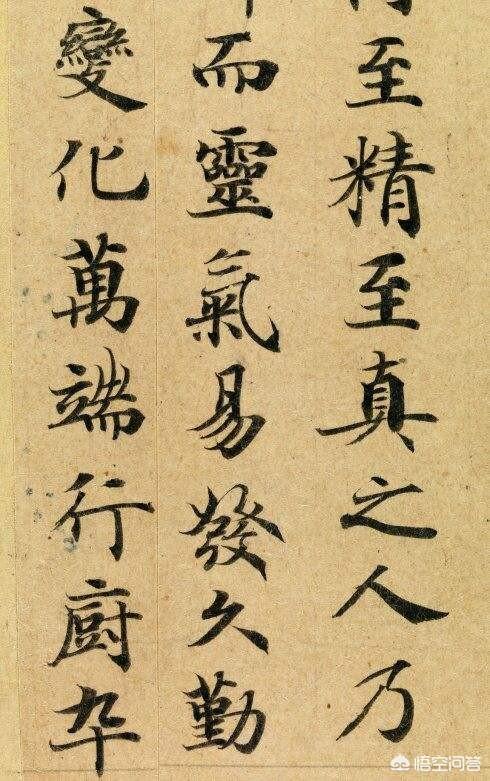 至精至真之人乃
而靈氣易發久勤
變化萬端行廚卆
悟空问答